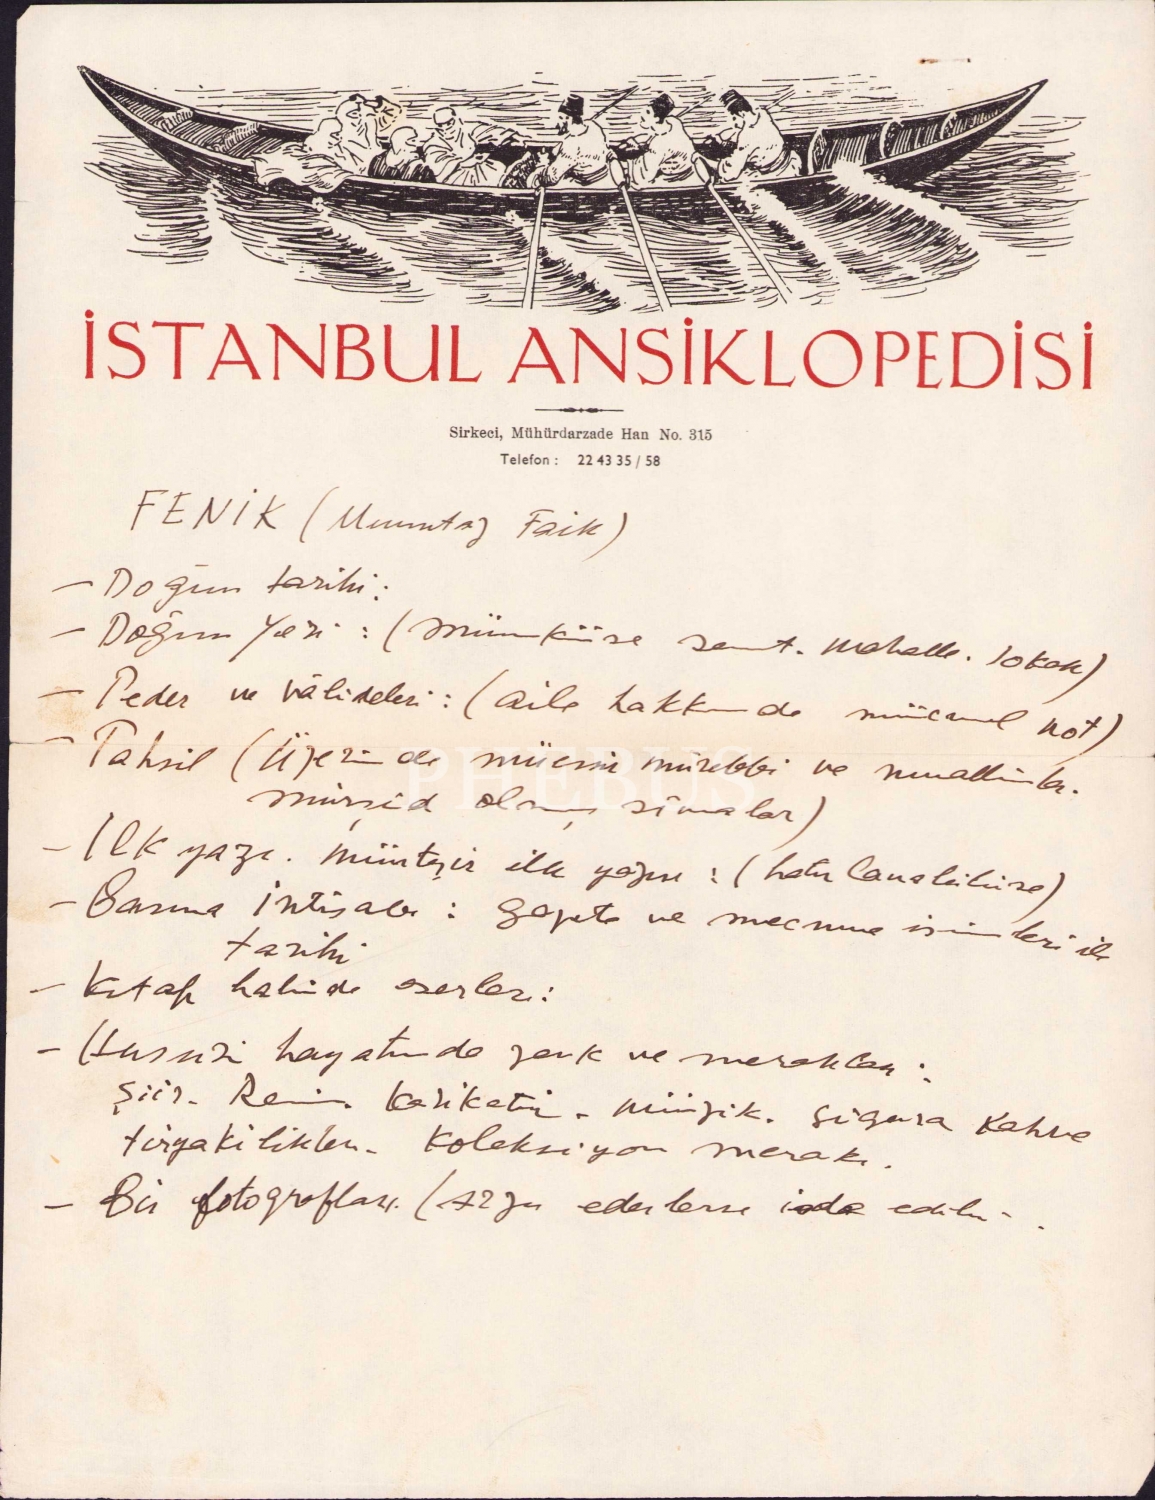 İSTANBUL ANSİKLOPEDİSİ
Sirkeci, Mühürdarzade Han No. 315
Telefon : 22 43 35 / 58
FENİK (Mümtaz Faik)
— Doğum tarihi :
— Doğum Yeri : (Mümkünse semt. mahalle. sokak)
— Peder ve vâlideleri : (aile hakkında mücmel not)
— Tahsil (Üzerinde müessir mürebbi ve muallimler.
mürşid olmuş simalar)
— İlk yazı. Münteşir ilk yazısı : (hatırlanabilirse)
— Basına İntisabı : gazete ve mecmua isimleri ile
tarihi
— Kitap halinde eserleri :
— Hususi hayatında zevk ve merakları :
Şiir. Resim. Karikatür. Müzik. Sigara Kahve
tiryakilikleri. Koleksiyon merakı.
— Bir fotoğrafları. (Arzu ederlerse iade edilir.
PHEBUS